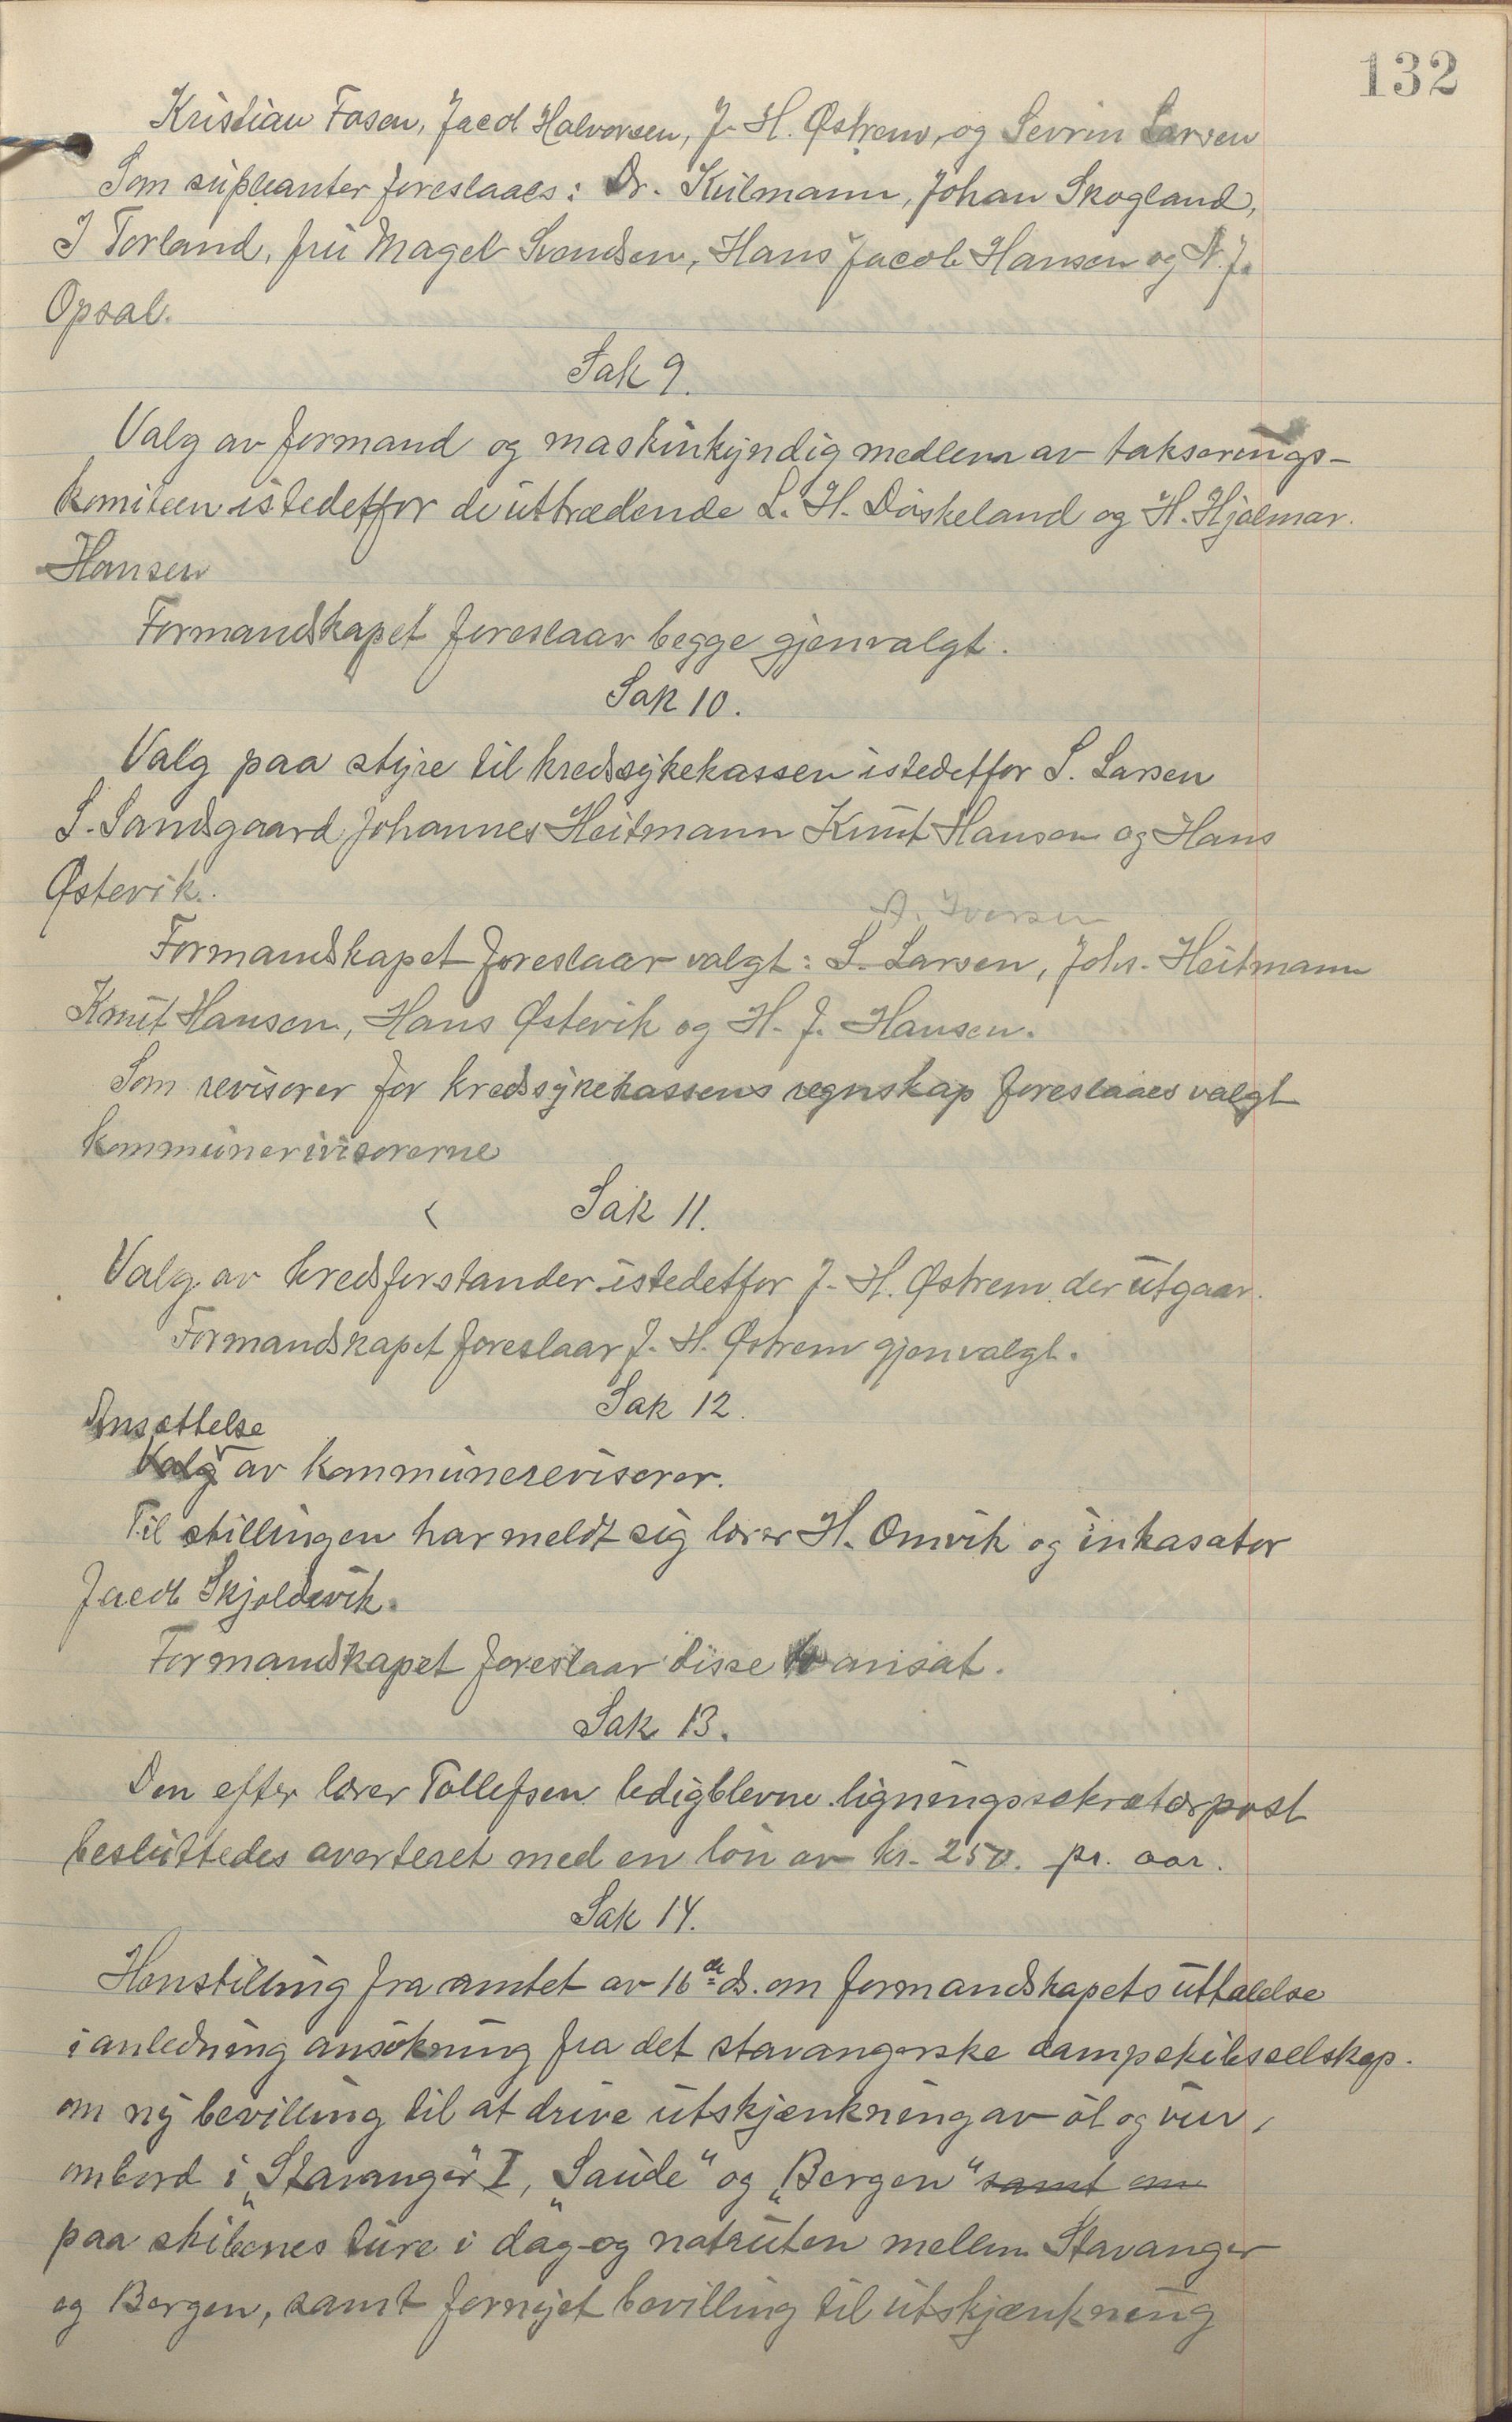 132
Kristian Fosen, Jacob Halvorsen, J. H. Østrem, og Sevrin Larsen
Som supleanter foreslaaes: Dr. Kulmann, Johan Skogland,
J Torland, fru Magel Svendsen, Hans Jacob Hansen og N. J.
Opsal.
Sak 9.
Valg av formand og maskinkyndig medlem av takserings-
komiteen istedetfor de uttrædende L. H. Døskeland og H. Hjalmar
Hansen
Formandskapet foreslaar begge gjenvalgt.
Sak 10.
Valg paa styre til kredssykekassen istedetfor S. Larsen
S. Sandsgaard Johannes Heitmann Knut Hansen og Hans
Østevik.
A. Iversen
Formandskapet foreslaar valgt: S. Larsen, Johs. Heitmann
Knut Hansen, Hans Østevik og H. J. Hansen.
Som revisorer for kredssykekassens regnskap foreslaaes valgt
kommunerivisorerne
Sak 11.
Valg av kredsforstander istedetfor J. H. Østrem der utgaar.
Formandskapet foreslaar J. H. Østrem gjenvalgt.
Sak 12.
Ansættelse
Valg av kommunerevisorer.
Til stillingen har meldt sig lærer H. Omvik og inkasator
Jacob Skjoldevik.
Formandskapet foreslaar disse ansat.
Sak 13.
Den efter lærer Tollefsen ledigblevne ligningssekretærpost
besluttedes averteret med en løn av kr. 250. pr. aar.
Sak 14.
Henstilling fra amtet av 16de ds. om formandskapets uttalelse
i anledning ansøkning fra det stavangerske dampskibsselskap.
om ny bevilling til at drive utskjænkning av øl og vin,
ombord i „Stavanger" I, „Saude" og „Bergen" samt om
paa skibenes ture i dag- og natruten mellem Stavanger
og Bergen, samt fornyet bevilling til utskjænkning